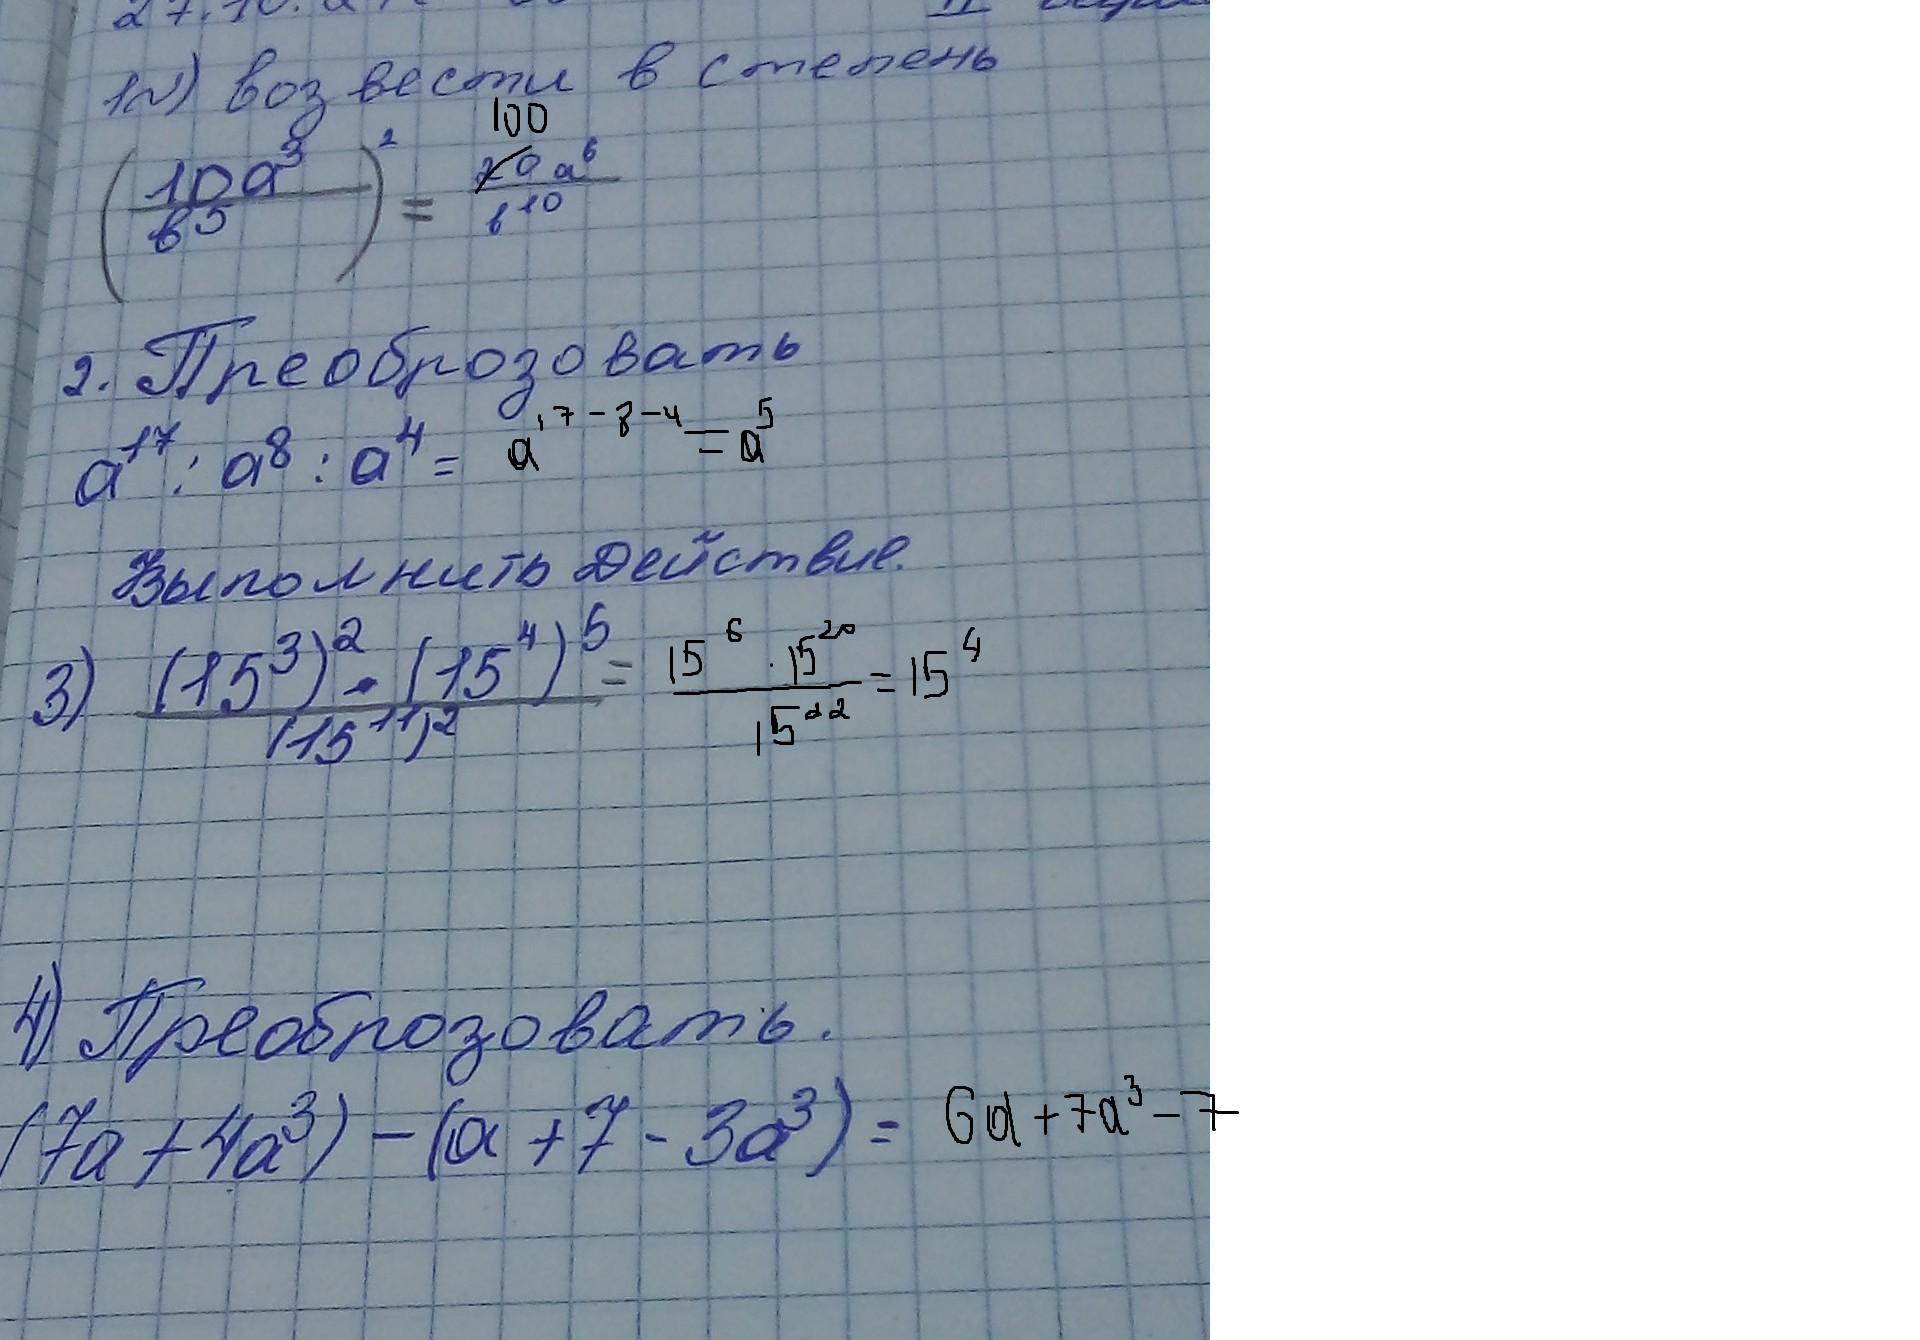 27.10.
II
1N) возвести в степень
100
(10a³/в⁵)² = 20a⁶/в¹⁰
2. Преоброзовать
a¹⁷ : a⁸ : a⁴ = a¹⁷⁻⁸⁻⁴ = a⁵
Выполнить действие.
3) (15³)² · (15⁴)⁵ / (15¹¹)² = 15⁶ · 15²⁰ / 15²² = 15⁴
4) Преоброзовать.
(7a + 4a³) - (a + 7 - 3a³) = 6a + 7a³ - 7